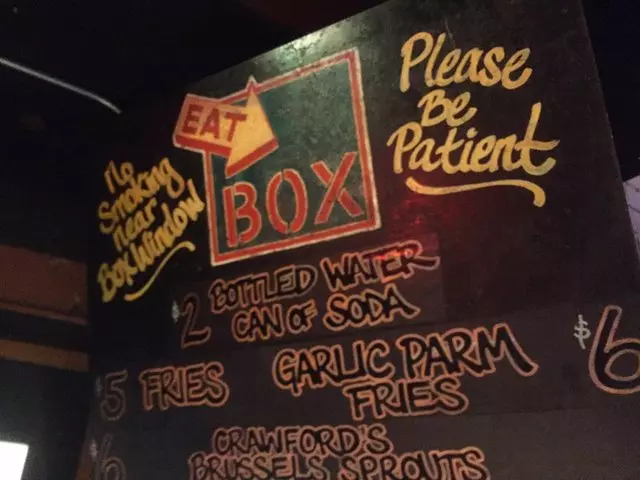 EAT
BOX
Please
Be
Patient
No
Smoking
near
Box Window
$2 BOTTLED WATER
CAN OF SODA
$5 FRIES
GARLIC PARM
FRIES
$6
6 CRAWFORD'S
BRUSSELS SPROUTS